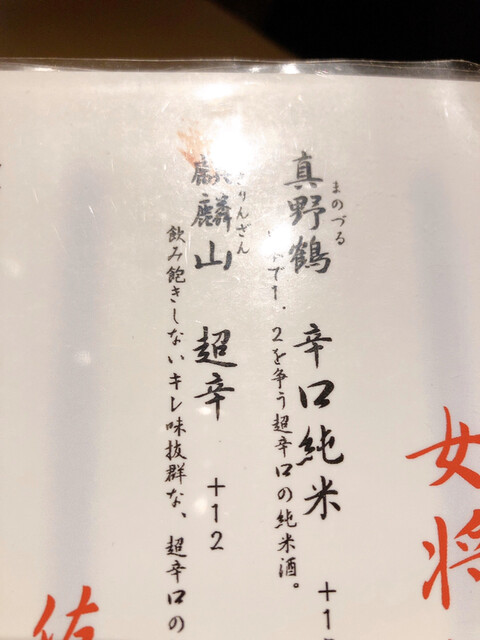 女将
まのづる
真野鶴 辛口純米 +1
で1、2を争う超辛口の純米酒。
りんざん
麒麟山 超辛 +12
飲み飽きしないキレ味抜群な、超辛口の
佐